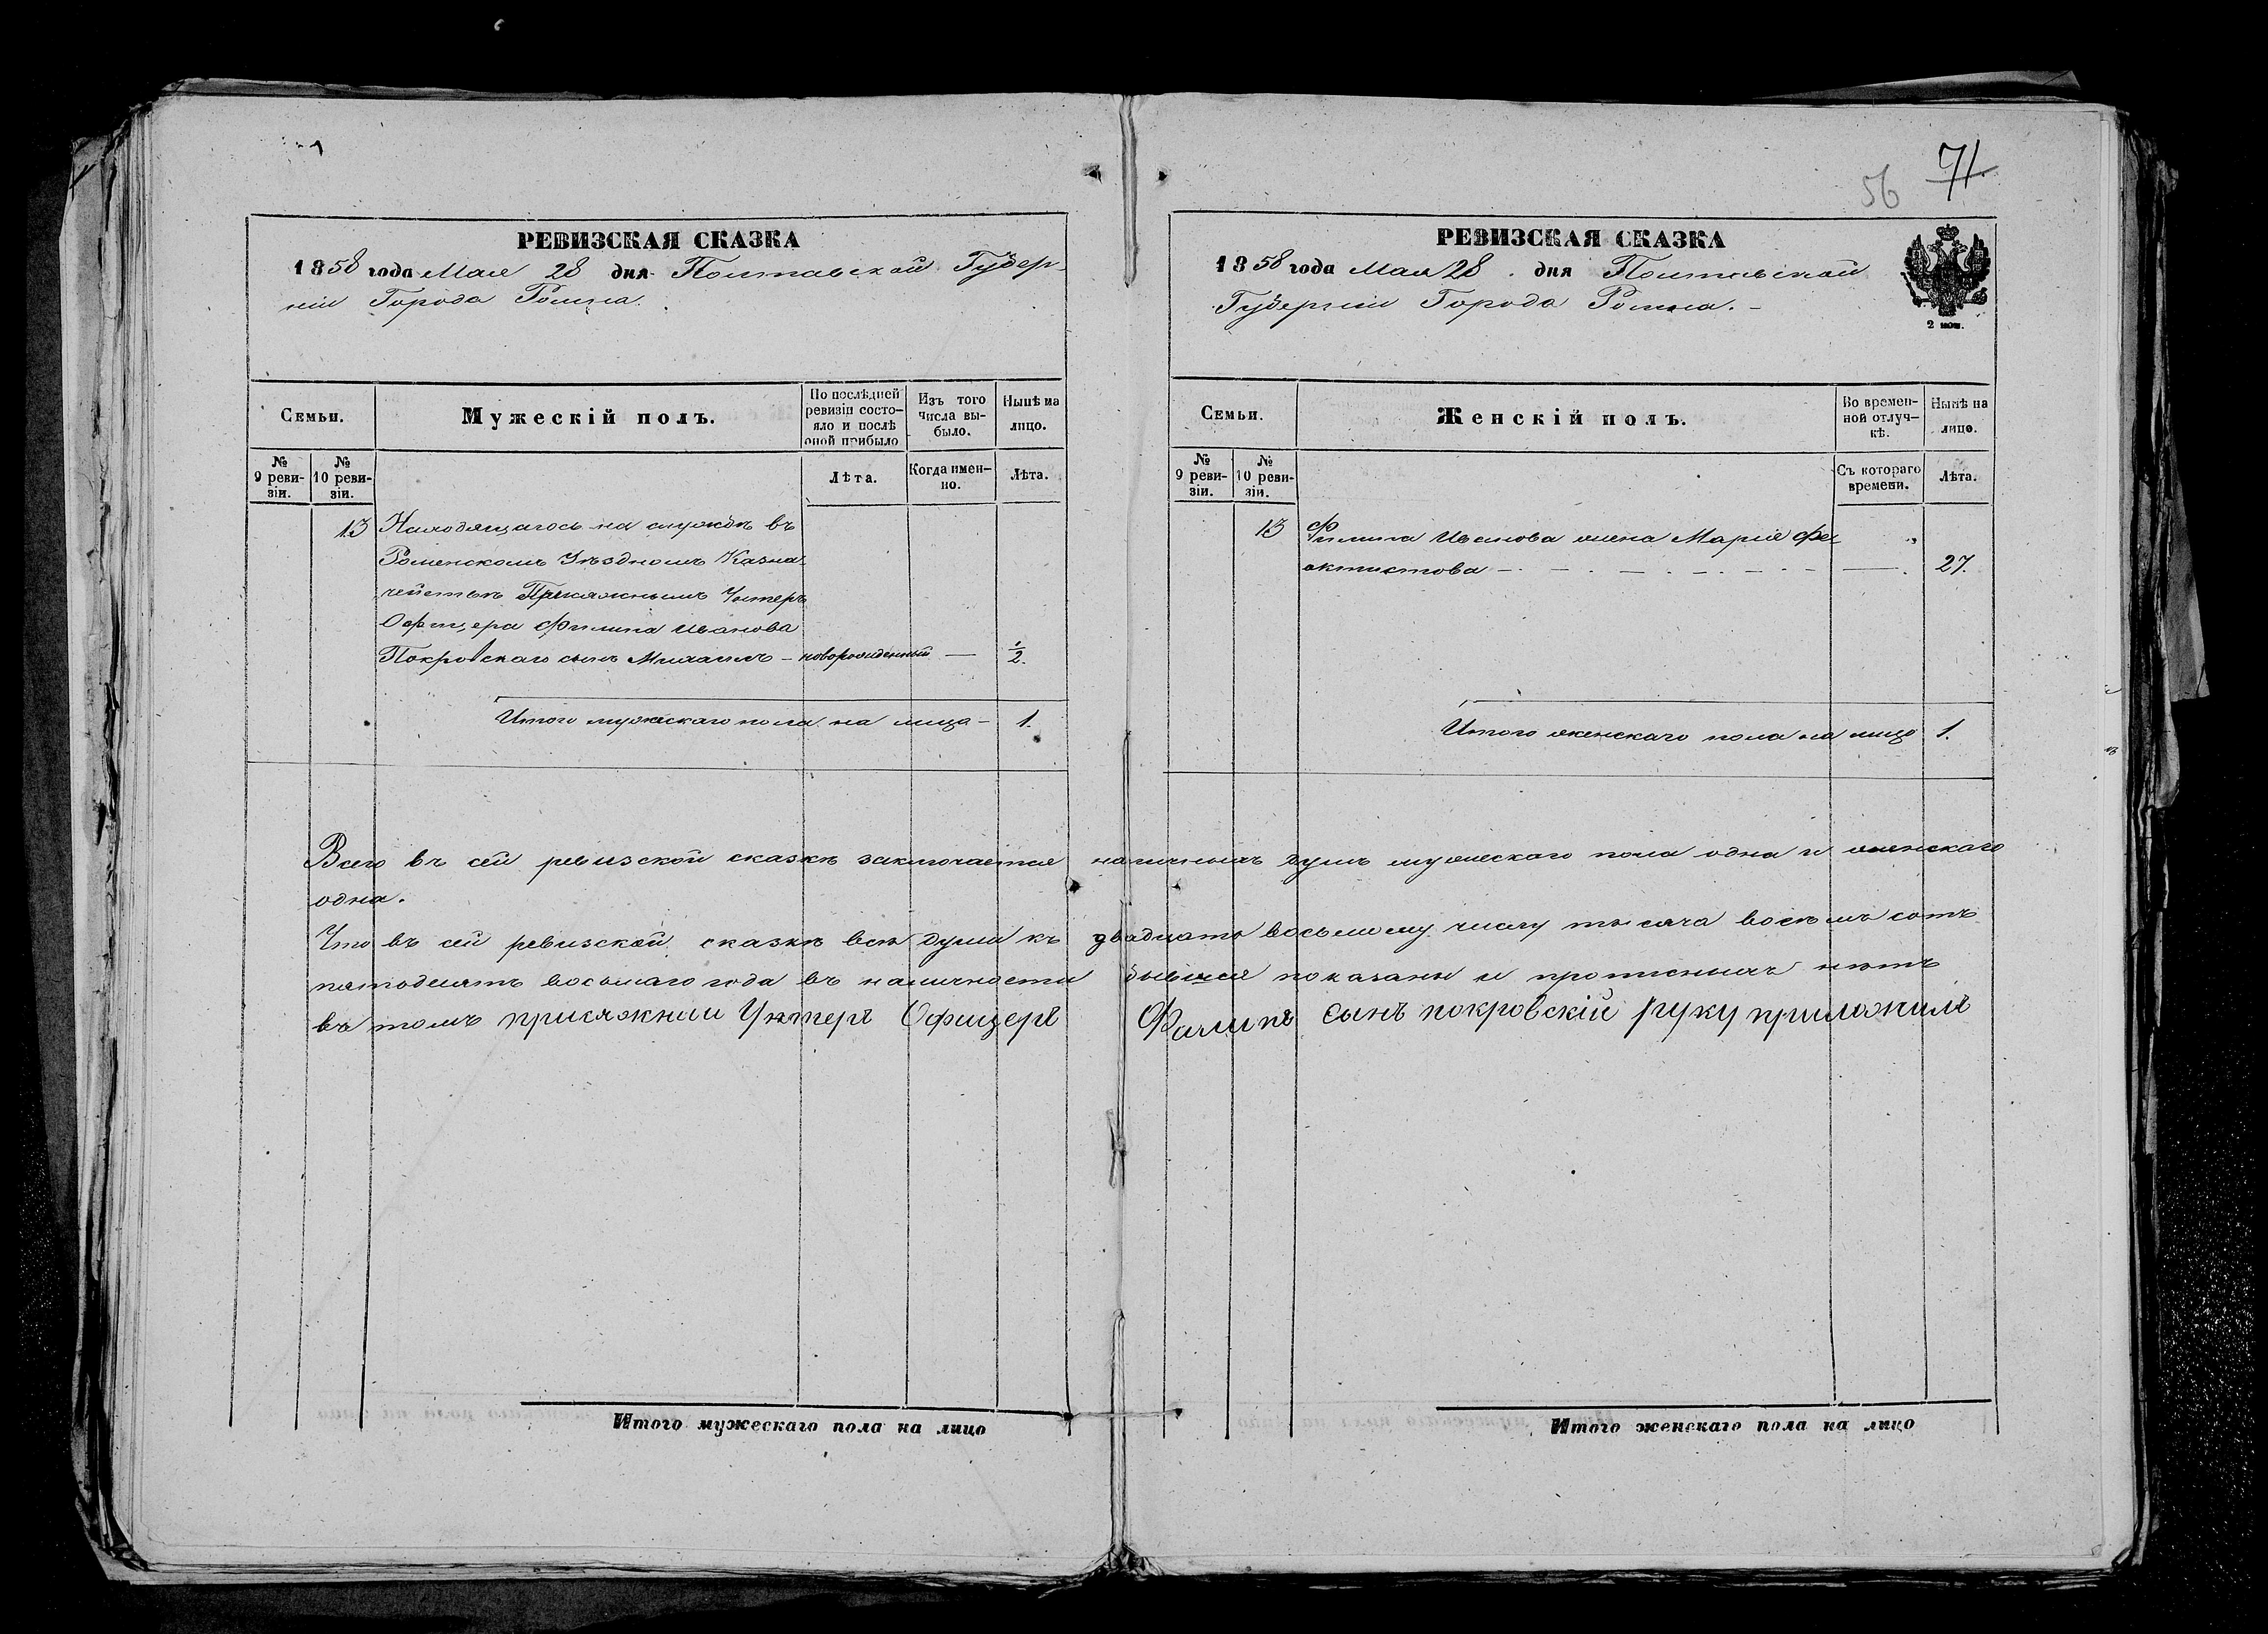 56 71
РЕВИЗСКАЯ СКАЗКА
1858 года Мая 28 дня Полтавской Губер-
ніи Города Ромна.
Семьи.
Мужескій полъ.
По послѣдней
ревизіи состо-
яло и послѣ
оной прибыло
Изъ того
числа вы-
было.
Нынѣ на
лицо.
№
9 реви-
зіи.
№
10 реви-
зіи.
Лѣта.
Когда имен-
но.
Лѣта.
13 Находящагось на службѣ въ
Роменскомъ Уѣздномъ Казна-
чействѣ Присяжнымъ Унтеръ
Офицера Филипа Иванова
Покровскаго сынъ Михаилъ – новорожденный — ½.
Итого мужескаго пола на лицо – 1.
РЕВИЗСКАЯ СКАЗКА
1858 года Мая 28 дня Полтавской
Губерніи Города Ромна. –
2 коп.
Семьи.
Женскій полъ.
Во времен-
ной отлуч-
кѣ.
Нынѣ на
лицо.
№
9 реви-
зіи.
№
10 реви-
зіи.
Съ котораго
времени.
Лѣта.
13 Филипа Иванова жена Марія Фе-
октистова — 27.
Итого женскаго пола на лицо 1.
Всего въ сей ревизской сказкѣ заключается наличныхъ душъ мужескаго пола одна и женскаго
одна.
Что въ сей ревизской сказкѣ всѣ души къ двадцать восьмому числу тысяча восемь сотъ
пятьдесятъ восьмаго года въ наличности бывшія показаны и прописныхъ нѣтъ
въ томъ присяжнии Унтеръ Офицеръ Филипъ сынъ покровскій руку приложилъ
Итого мужескаго пола на лицо
Итого женскаго пола на лицо